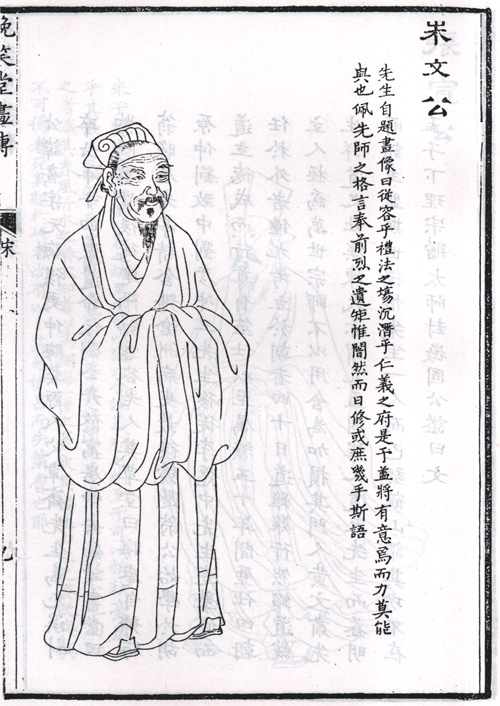 朱文公
先生自題畫像曰從容乎禮法之場沉潛乎仁義之府是予盖將有意焉而力莫能
與也佩先師之格言奉前烈之遺矩惟闇然而日修或庶幾乎斯語
晚笑堂畫傳
宋
九